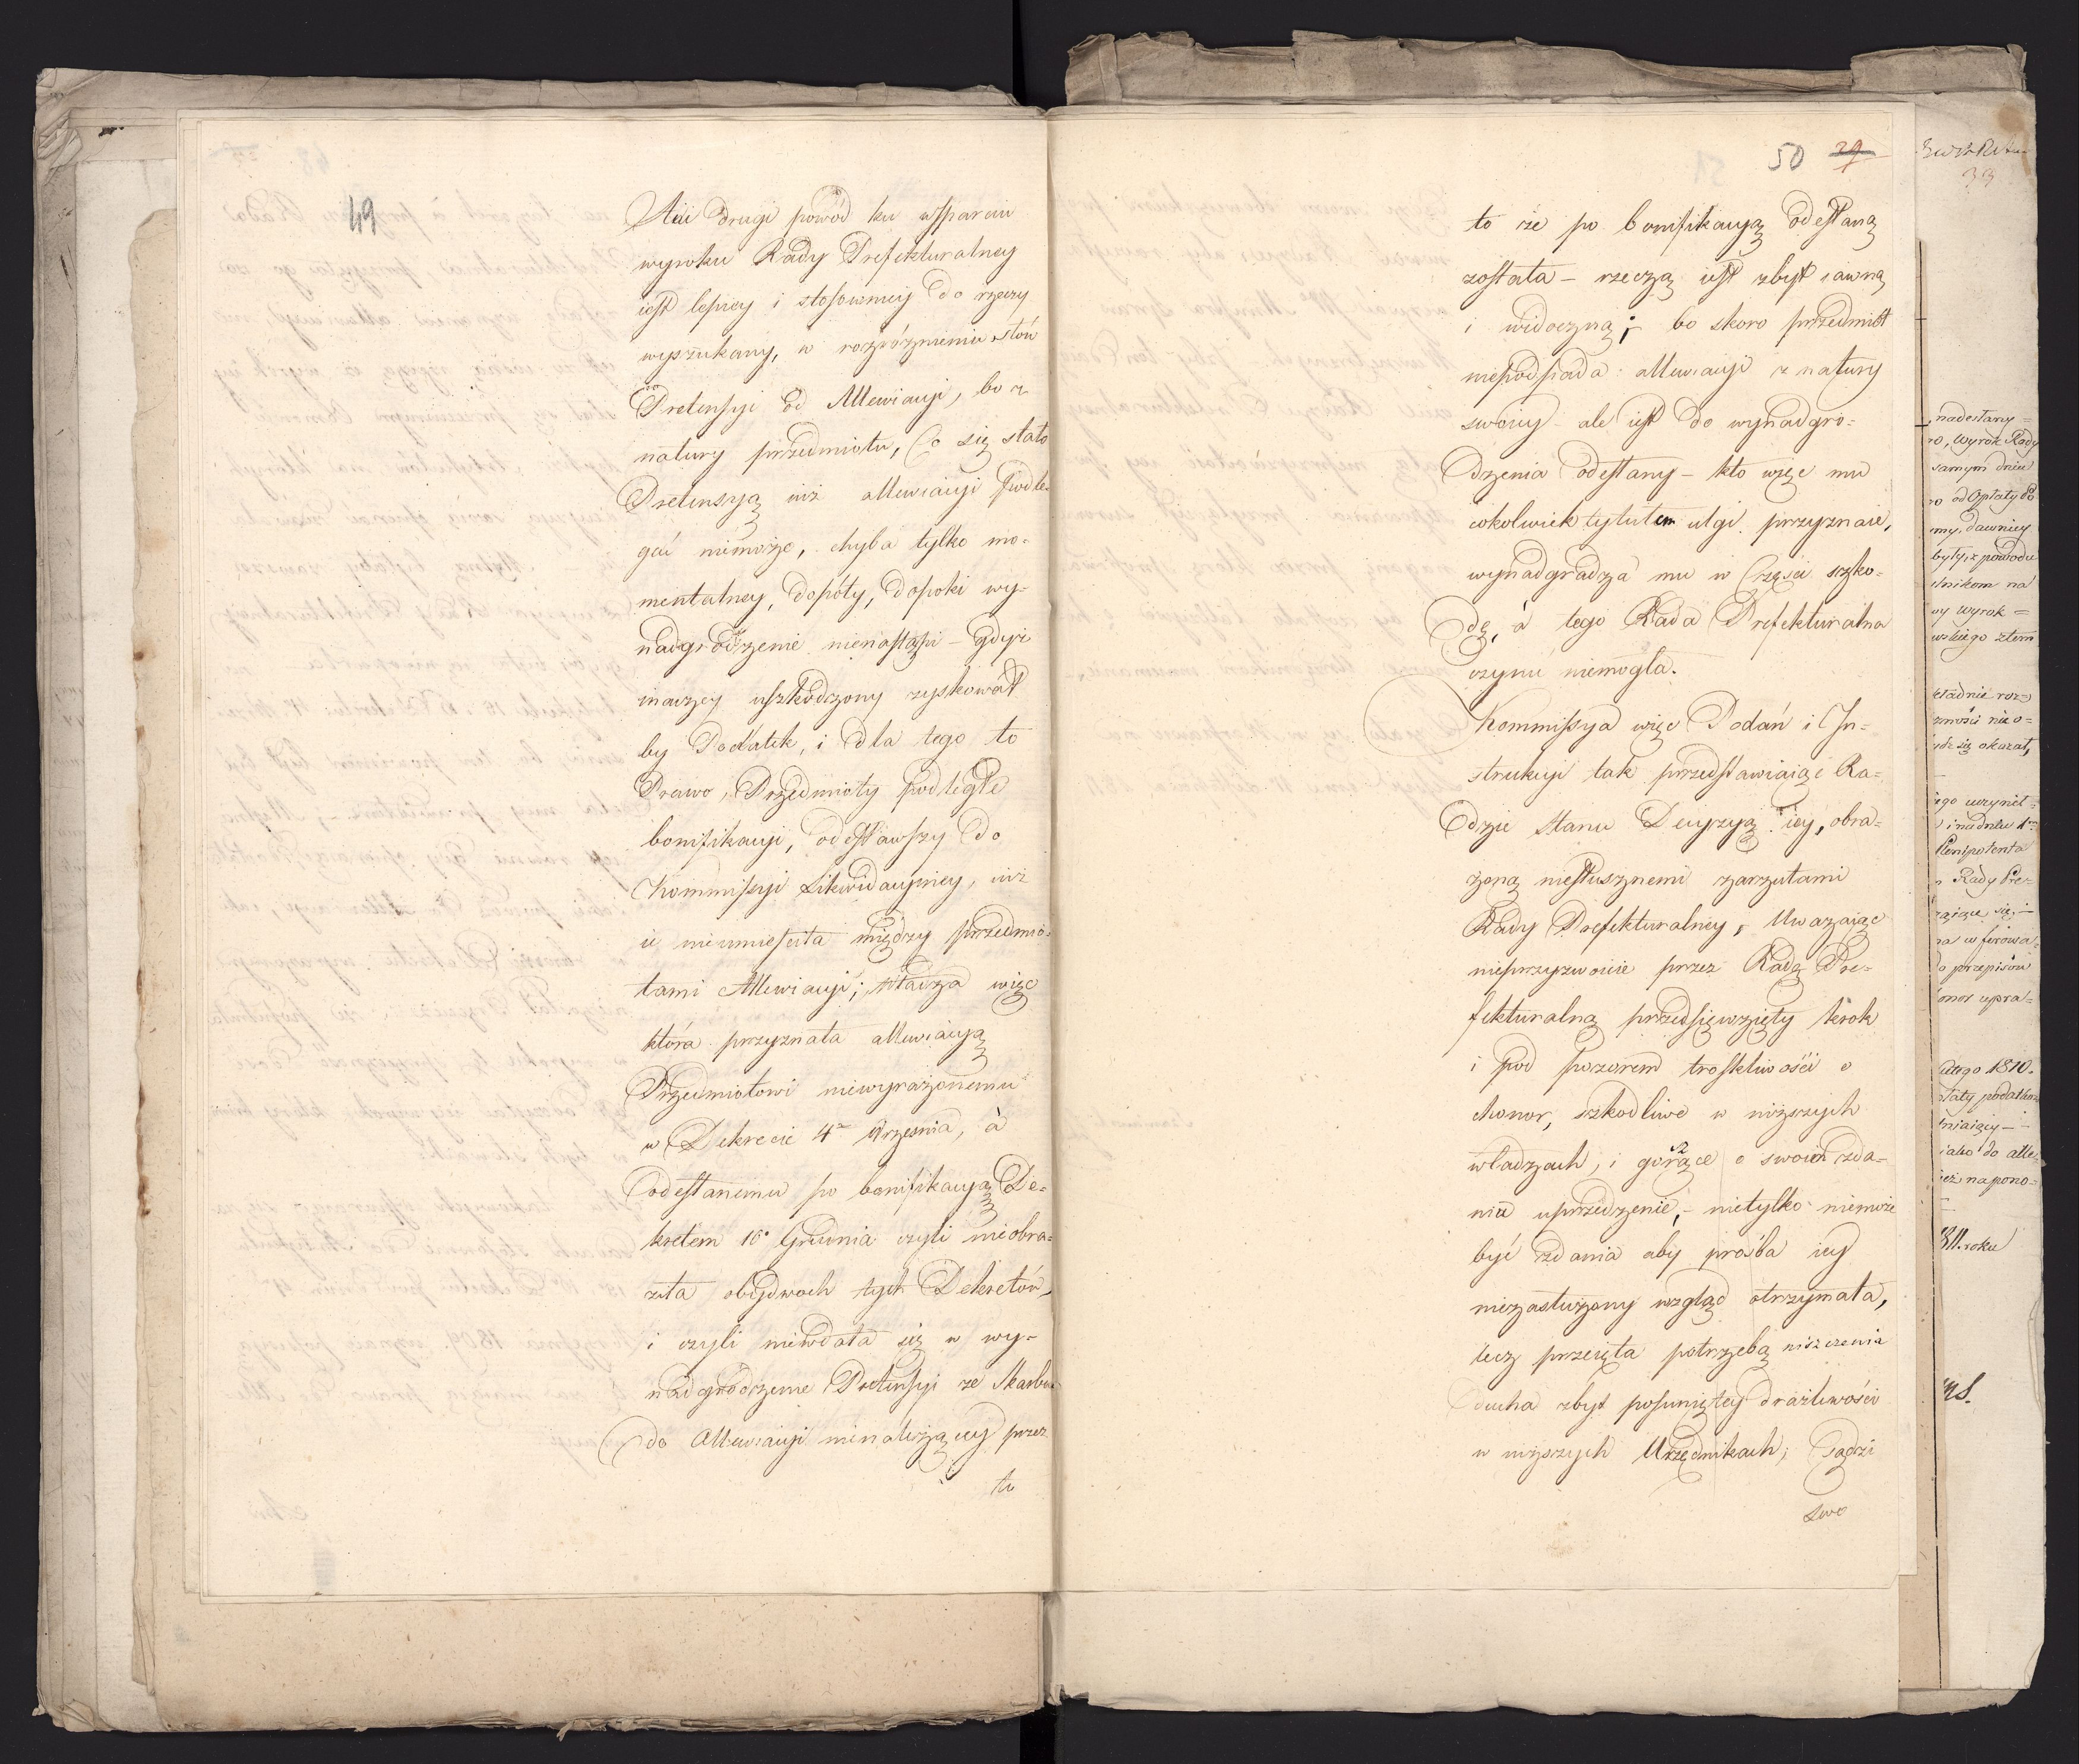 49
Ani drugi powód ku wsparciu
wyroku Rady Prefekturalney
iest lepiey i stosowniey do rzeczy
wyszukany, w rozróżnieniu słów
Pretensyi od Allewiacyi, bo z
natury przedmiotu, Co się stało
Pretensyą iuż allewiacyi podle-
gać niemoże, chyba tylko mo-
mentalney, dopóty, dopoki wy-
nadgrodzenie nienastąpi – gdyż
inaczey uszkodzony zyskował
by Podatek, i dla tego to
Prawo, Przedmioty podległe
bonifikacyi, odesławszy do
Kommissyi Likwidacyiney, iuż
ie nieumieściła między przedmio-
tami Allewiacyi; władza więc
która przyznała allewiacyą
Przedmiotowi niewyrażonemu
w Dekrecie 4º Września, à
odesłanemu po bonifikacyą De-
kretem 16º Grudnia czyli nieobra-
ziła obydwoch tych Dekretów,
i czyli niewdała się w wy-
nadgrodzenie Pretensyi ze Skarbu
do Allewiacyi nienależącey przez
to
50 29
to że po bonifikacyą odesłaną
została – rzeczą iest zbyt iawną
i widoczną; bo skoro przedmiot
niepodpada allewiacyi z natury
swoiey – ale iest do wynadgro-
dzenia odesłany – kto więc mu
cokolwiek tytułem ulgi przyznaie,
wynadgradza mu w Części szko-
dę, à tego Rada Prefekturalna
czynić niemogła.
Kommissya więc Podań i In-
strukcyi tak przedstawiaiąc Ra-
dzie Stanu Decyzyą iey, obra-
żoną niesłusznemi zarzutami
Rady Prefekturalney, Uważaiąc
nieprzyzwoicie przez Radę Pre-
fekturalną przedsięwzięty krok
i pod pozorem troskliwości o
honor, szkodliwe w niższych
władzach, i gorące o swoim zda-
niu uprzedzenie, – nietylko niemoże
być zdania aby proźba iey
niezasłużony wzgląd otrzymała,
lecz przeięta potrzebą niszczenia
ducha zbyt posuniętey drażliwości
w niższych Urzędnikach, Sądzi
swo
nadesłany =
ro, Wyrok Rady
samym dniu
ro od Opłaty do
my, dawniey
były, z powodu
dnikom na
wy wyrok =
wskiego ztem
kładnie roz=
zności nie o=
ydz się okazał,
iego uczynił=
i na dniu 1º
Plenipotenta
Rady Pre-
raiące się;—
na w forowa=
do przepisów
onor upra=
utego 1810.
płaty podatków
niaiący —
iako do alle=
ież na pono=
811. roku